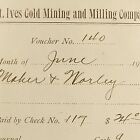 t. Ives Gold Mining and Milling Compan
Voucher No. 140
Month of June 19
Maher & Worley
Paid by Check No. 117 $ 24